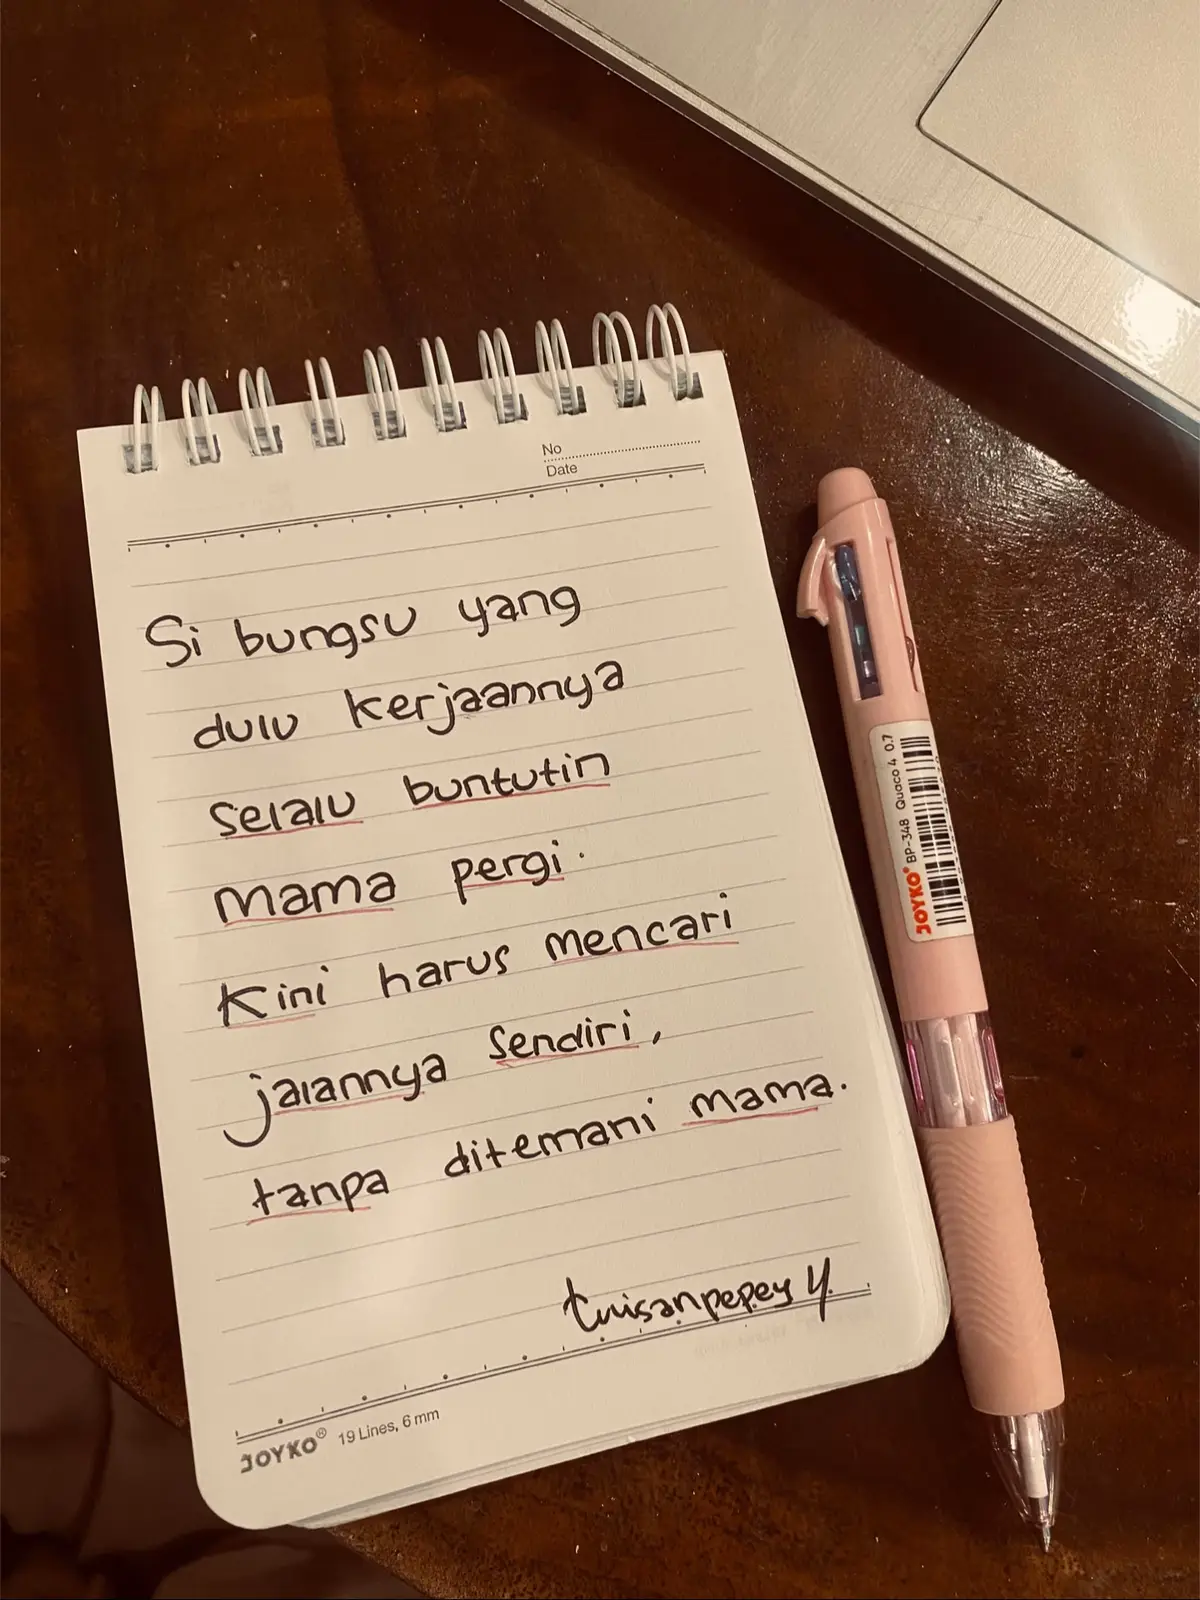 No
Date
Si bungsu yang
dulu kerjaannya
selalu buntutin
mama pergi.
Kini harus mencari
jalannya sendiri,
tanpa ditemani mama.
JOYKO® 19 Lines, 6 mm
JOYKO® BP-348 Quaco 4 0.7